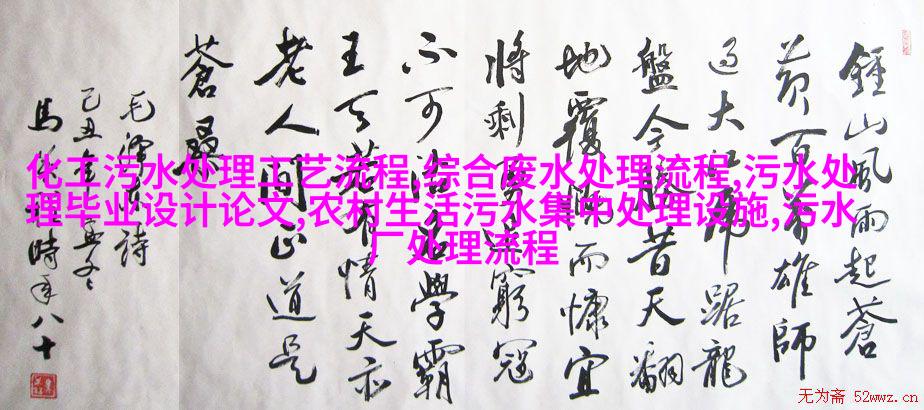 鍾山風雨起蒼
黃百萬雄師
過大江虎踞龍
盤今勝昔天翻
地覆慨而慷宜
將剩勇追窮寇
不可沽名學霸
王天若有情天亦
老人間正道是
蒼桑
毛澤東詩
己丑年孟冬
馬 時年八十
化工污水处理工艺流程,综合废水处理流程,污水处
理毕业设计论文,农村生活污水集中处理设施,污水
厂处理流程
无为斋 52wwz.cn